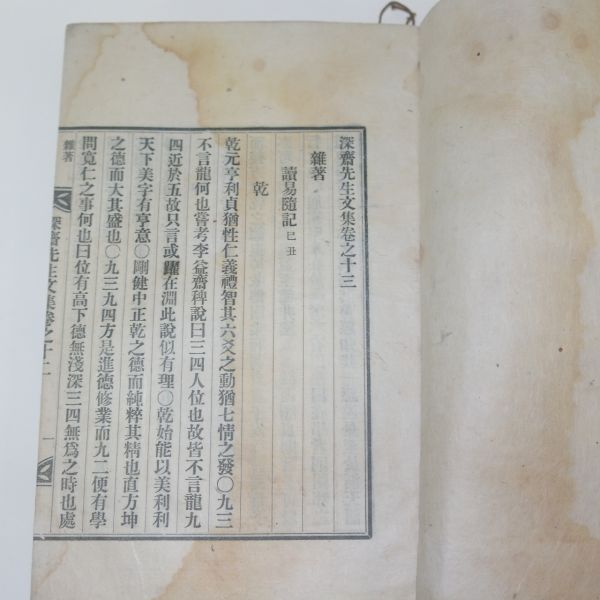 深齋先生文集卷之十三
雜著
讀易隨記 己丑
乾
乾元亨利貞猶性仁義禮智其六爻之動猶七情之發○九三
不言龍何也嘗考李益齋稗說曰三四人位也故皆不言龍九
四近於五故只言或躍在淵此說似有理○乾始能以美利利
天下美字有亨意○剛健中正乾之德而純粹其精也直方坤
之德而大其盛也○九三九四方是進德修業而九二便有學
問寬仁之事何也曰位有高下德無淺深三四無爲之時也處
雜著
深齋先生文集卷之十三
一